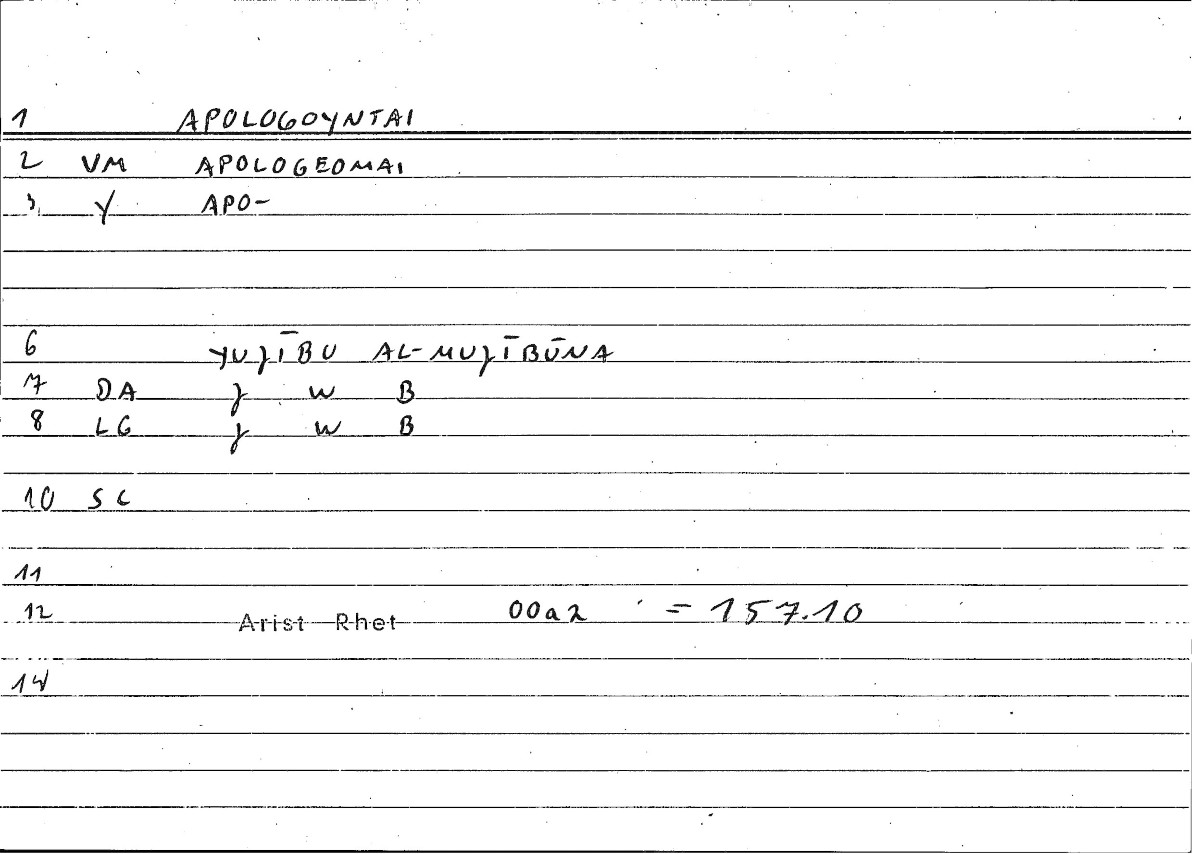 1 APOLOGOYNTAI
2 VM APOLOGEOMAI
3 Y APO-
6 YUJĪBU AL-MUJĪBŪNA
7 DA J W B
8 LG J W B
10 SC
11
12 Arist Rhet 00a2 = 157.10
14